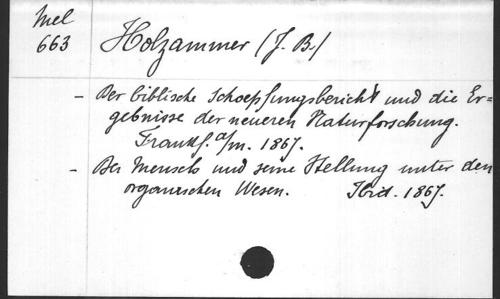 Mel
663
Holzammer (J. B.)
- Der biblische Schoepfungsbericht und die Er=
gebnisse der neueren Naturforschung.
Frankf. a/m. 1867.
- Der Mensch und seine Stellung unter den
organischen Wesen. Ibid. 1867.